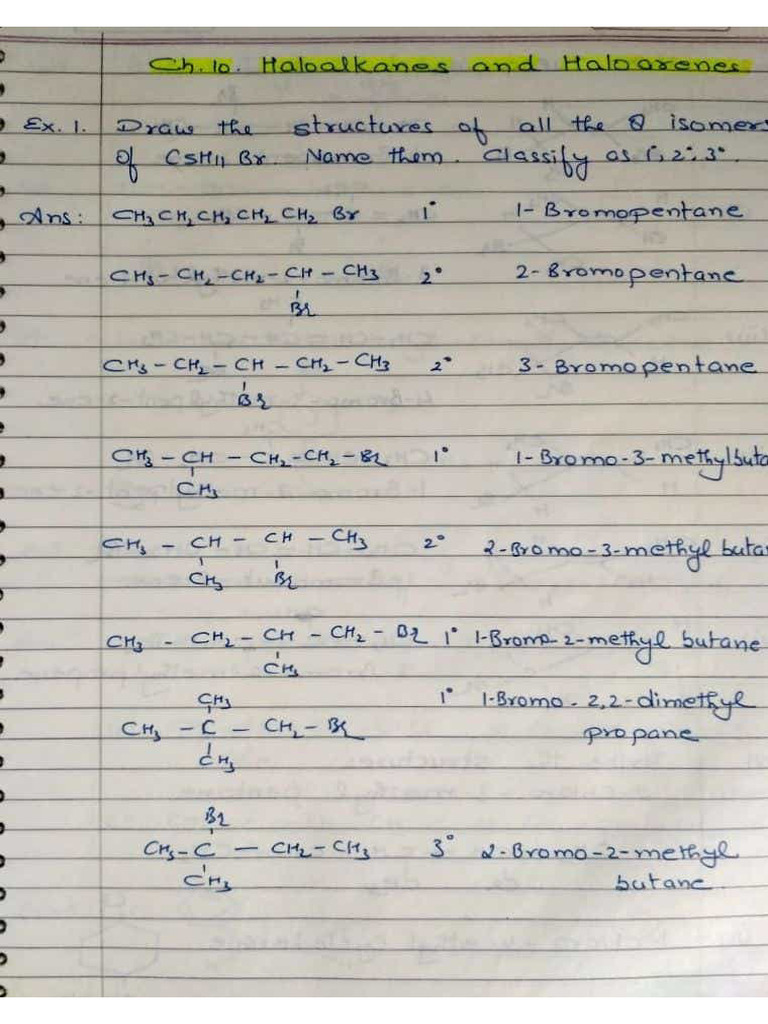 Ch.10. Haloalkanes and Haloarenes
Ex. 1. Draw the structures of all the 8 isomers
of C5H11 Br. Name them. Classify as 1°, 2°, 3°.
Ans: CH3CH2CH2CH2CH2 Br 1° 1-Bromopentane
CH3-CH2-CH2-CH-CH3 2° 2-Bromopentane
Br
CH3-CH2-CH-CH2-CH3 2° 3-Bromopentane
Br
CH3-CH-CH2-CH2-Br 1° 1-Bromo-3-methylbuta
CH3
CH3-CH-CH-CH3 2° 2-Bromo-3-methyl buta
CH3 Br
CH3-CH2-CH-CH2-Br 1° 1-Bromo-2-methyl butane
CH3
CH3 1° 1-Bromo-2,2-dimethyl
CH3-C-CH2-Br propane
CH3
Br
CH3-C-CH2-CH3 3° 2-Bromo-2-methyl
CH3 butane.